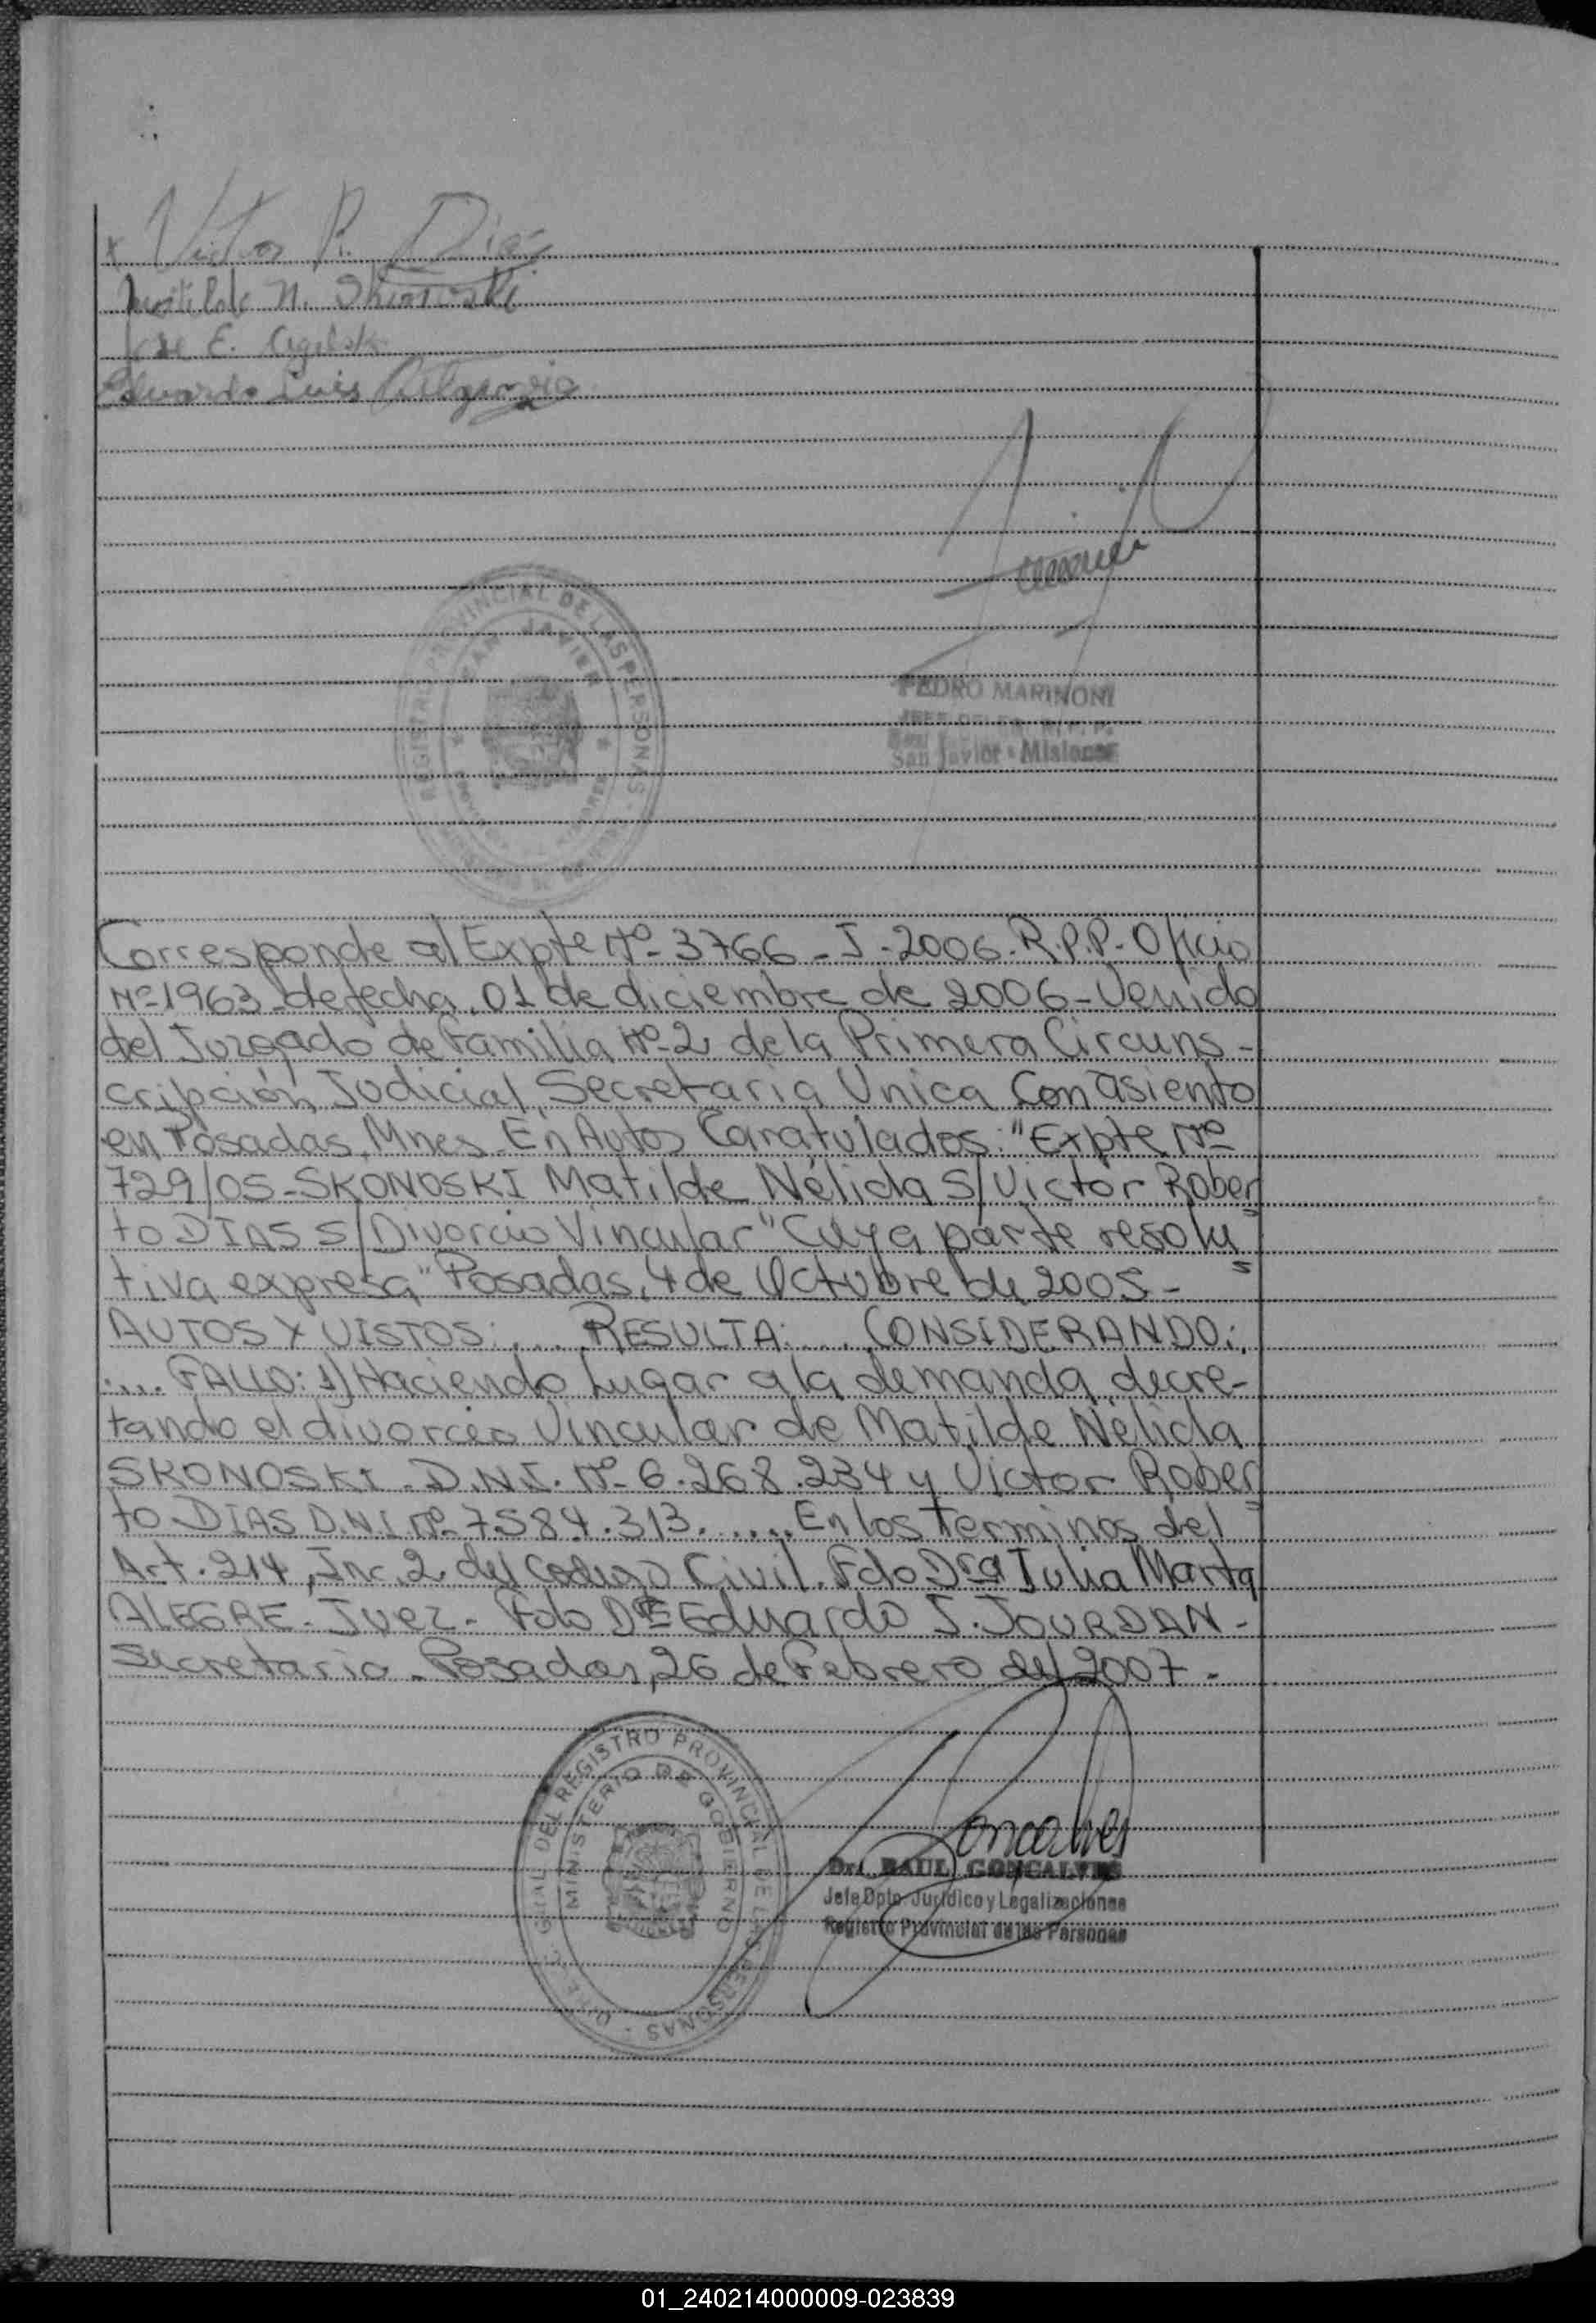 x Victor R. Dias
Matilde N. Skonoski
Jose E.
Eduardo Luis
REGISTRO PROVINCIAL DE LAS PERSONAS
SAN JAVIER
PEDRO MARINONI
JEFE DELEG. R. P. P.
San Javier - Misiones
Corresponde al Expte Nº-3766-J-2006-R.P.P-Oficio
Nº-1963-de fecha, 01 de diciembre de 2006-Venido
del Juzgado de Familia Nº-2, de la Primera Circuns-
cripción Judicial, Secretaria Unica Con asiento
en Posadas, Mnes-En Autos Caratulados: "Expte Nº
729/05-SKONOSKI Matilde Nélida S/ Victor Rober
to DIAS S/ Divorcio Vincular" Cuya parte resolu
tiva expresa "Posadas, 4 de Octubre de 2005-
AUTOS Y VISTOS:.... RESULTA:.... CONSIDERANDO:
.... FALLO: 1) Haciendo Lugar a la demanda, decre-
tando el divorcio Vincular de Matilde Nélida
SKONOSKI-D.N.I. Nº-6.268.234 y Victor Rober
to DIAS D.N.I. Nº-7.584.313....... En los Terminos del
Art. 214, Inc. 2 del Codigo Civil. Fdo Dra Julia Marta
ALEGRE-Juez-Fdo Dr Eduardo J. JOURDAN-
Secretario-Posadas, 26 de Febrero del 2007-
GRAL DEL REGISTRO PROVINCIAL DE LAS PERSONAS
MINISTERIO DE GOBIERNO
Goncalves
Dr. RAUL GONCALVES
Jefe Dpto. Jurídico y Legalizaciones
Registro Provincial de las Personas
01_240214000009-023839